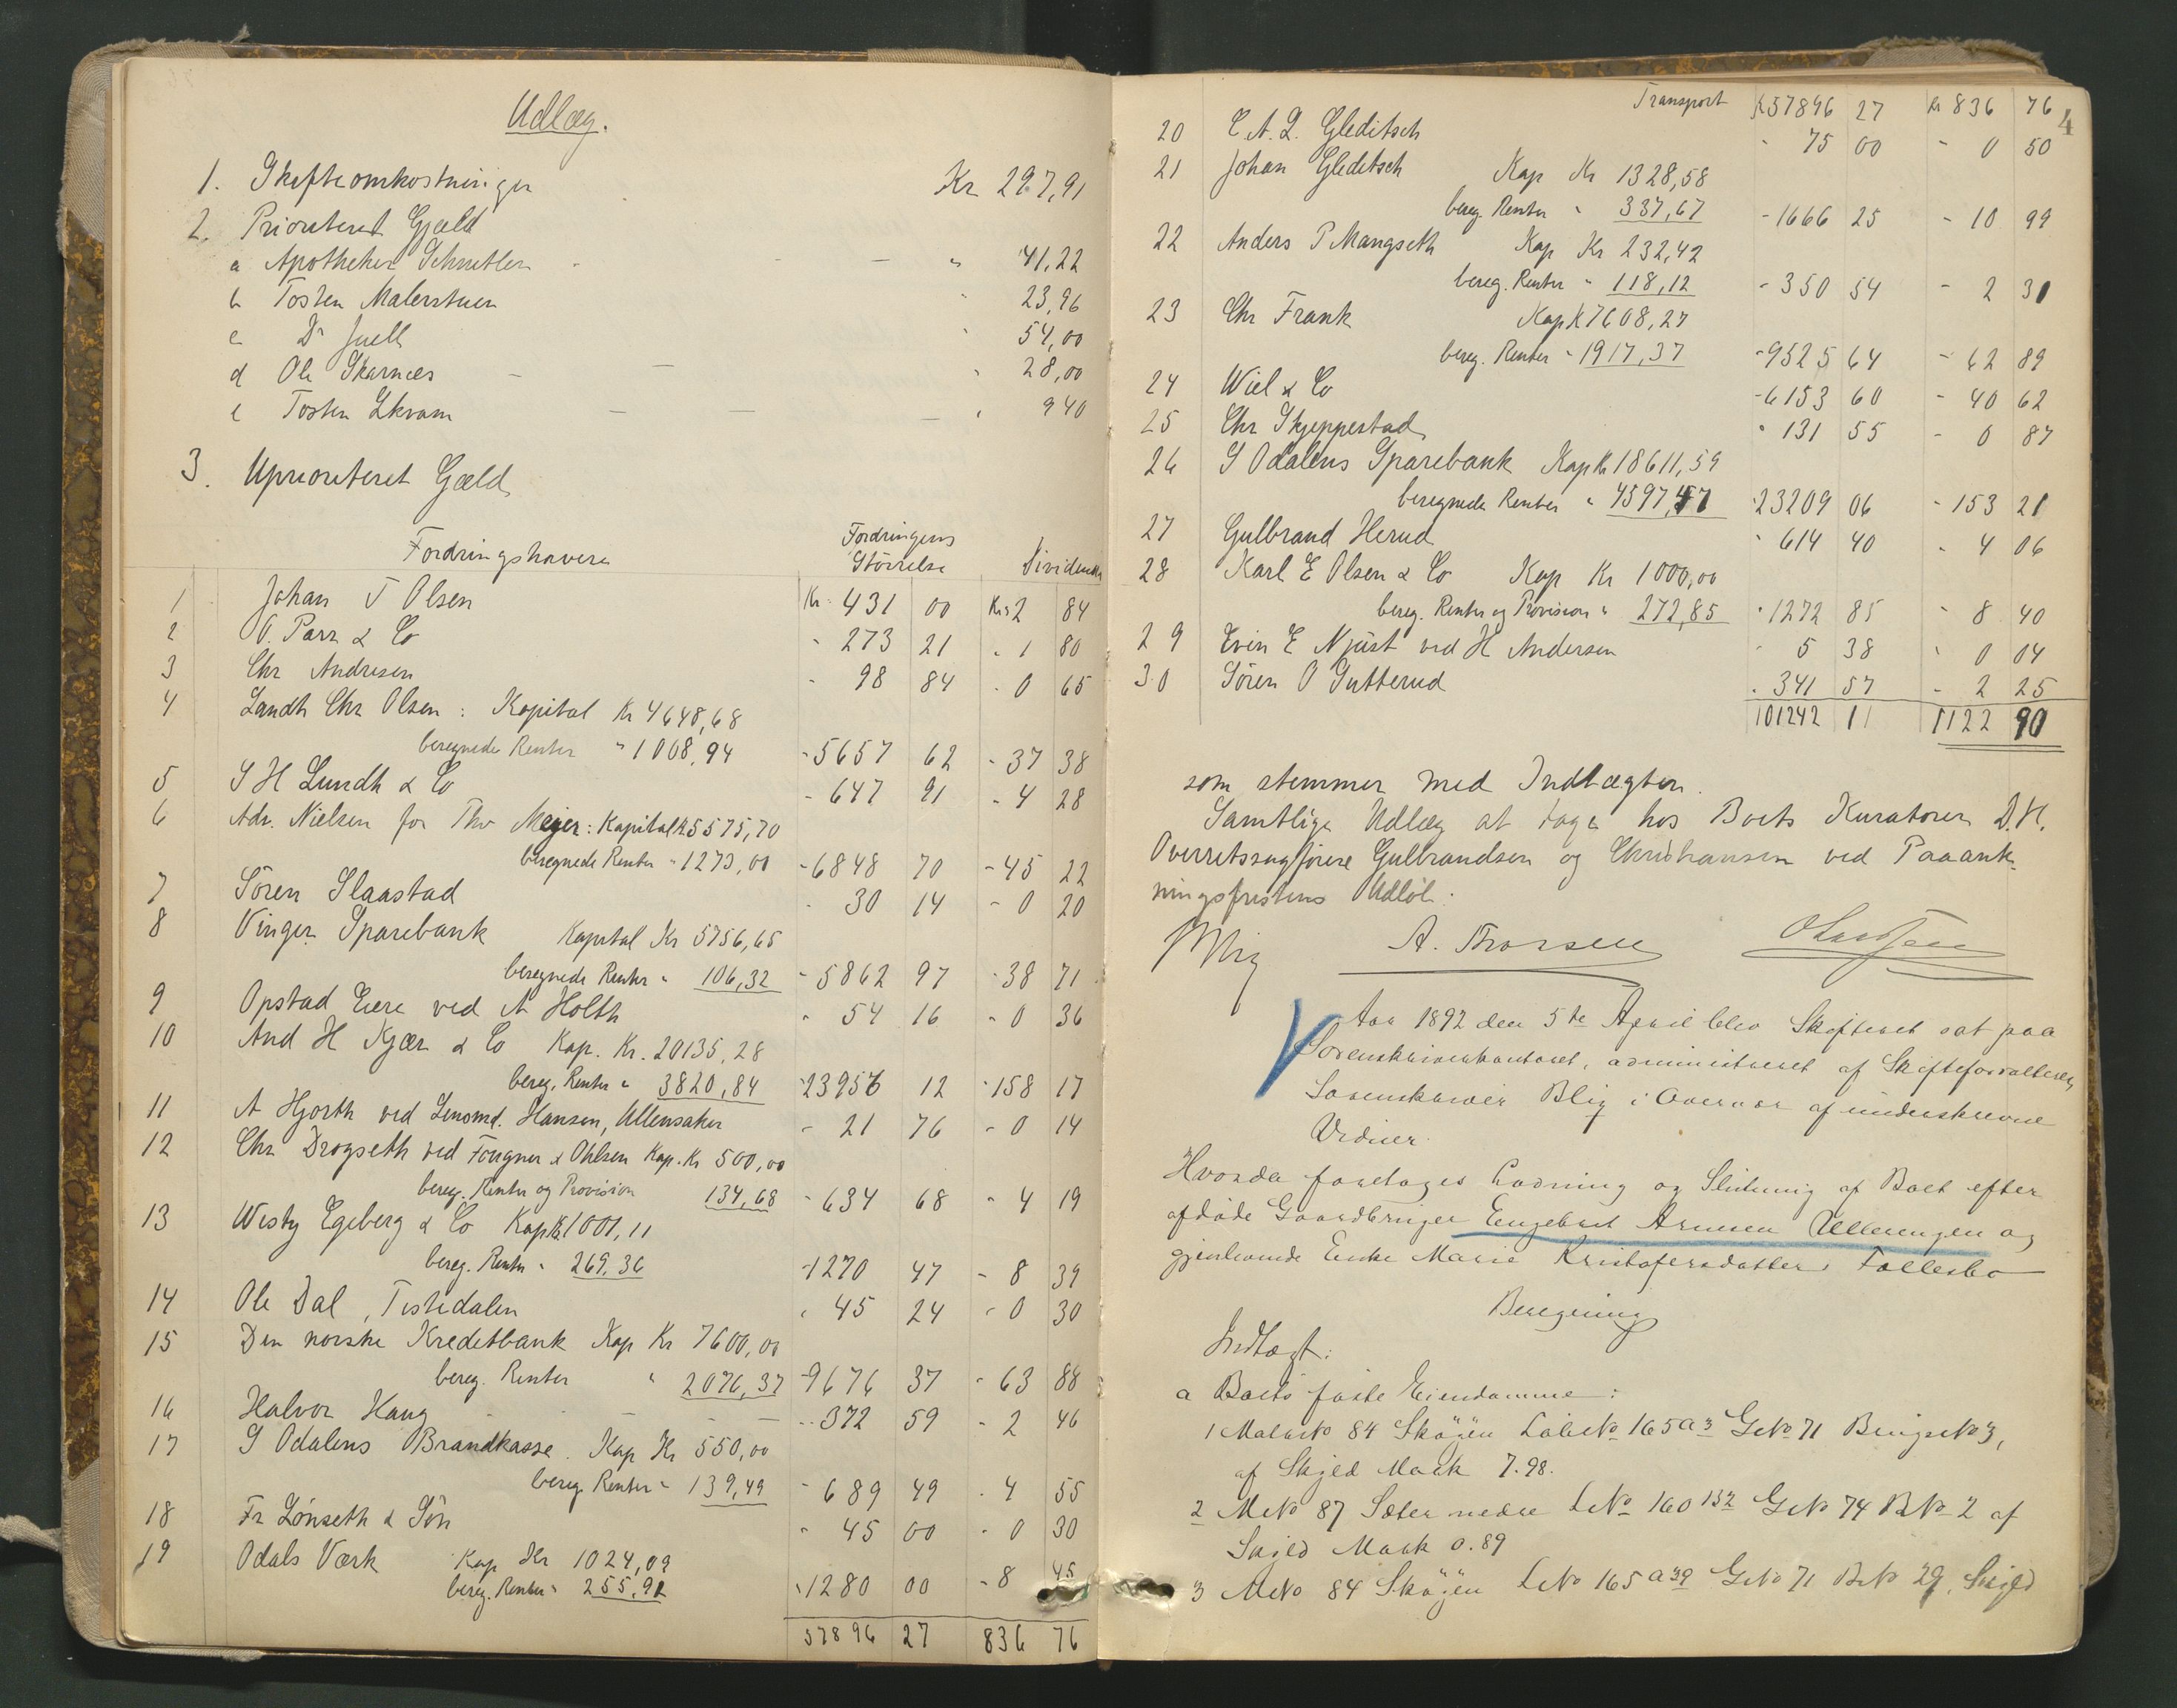 Udlæg.
1. Skifteomkostninger Kr 297,91
2. Prioriteret Gjæld
a Apotheker Schnitler - - — " 41,22
b Tosten Malerstuen " 23,96
c Dr Juell " 54,00
d Ole Skarnæs — — " 28,00
e Tosten Ekram — — — " 940
3. Uprioriteret Gæld
Fordringshavere Fordringens Størrelse Dividende
1 Johan T Olsen Kr. 431 00 Kr. 2 84
2 O. Parr & Co - 273 21 - 1 80
3 Chr Andresen - 98 84 - 0 65
4 Landh Chr Olsen: Kapital Kr 4648,68
beregnede Renter " 1008,94 - 5657 62 - 37 38
5 S H Lundh & Co - 647 91 - 4 28
6 Adv. Nielsen for Thv Meyer: Kapital K 5575,70
beregnede Renter " 1273,00 - 6848 70 - 45 22
7 Søren Slaastad - 30 14 - 0 20
8 Vinger Sparebank Kapital Kr 5756,65
beregnede Renter " 106,32 - 5862 97 - 38 71
9 Opstad Eiere ved A Holth - 54 16 - 0 36
10 And H Kjær & Co Kap. Kr. 20135,28
bereg. Renter " 3820,84 - 23956 12 - 158 17
11 A Hjorth ved Lensmd. Hansen, Ullensaker - 21 76 - 0 14
12 Chr Drogseth ved Fougner & Ohlsen Kap. Kr 500,00
bereg. Renter og Provision 134,68 - 634 68 - 4 19
13 Westy Egeberg & Co Kap Kr 1001,11
bereg. Renter " 269,36 - 1270 47 - 8 39
14 Ole Dal, Tistedalen - 45 24 - 0 30
15 Den norske Kreditbank Kap Kr 7600,00
bereg. Renter " 2076,37 - 9676 37 - 63 88
16 Halvor Haug - 372 59 - 2 46
17 S Odalens Brandkasse. Kap Kr 550,00
bereg Renter " 139,49 - 689 49 - 4 55
18 Fr Lønseth & Søn - 45 00 - 0 30
19 Odals Værk Kap Kr 1024,09
bereg. Renter " 255,91 - 1280 00 - 8 45
57896 27 836 76
4
Transport K 57896 27 Kr 836 76
20 C. A. L. Gleditsch - 75 00 - 0 50
21 Johan Gleditsch Kap Kr 1328,58
bereg. Renter " 337,67 - 1666 25 - 10 99
22 Anders P Mangseth Kap Kr 232,42
bereg. Renter " 118,12 - 350 54 - 2 31
23 Chr Frank Kap K 7608,27
bereg. Renter " 1917,37 - 9525 64 - 62 89
24 Wiel & Co - 6153 60 - 40 62
25 Chr Skjeppestad - 131 55 - 0 87
26 S Odalens Sparebank Kap Kr 18611,59
beregnede Renter " 4597,47 - 23209 06 - 153 21
27 Gulbrand Herud - 614 40 - 4 06
28 Karl E Olsen & Co Kap Kr 1000,00
bereg. Renter og Provision " 272,85 - 1272 85 - 8 40
29 Even E Njust ved H Andersen - 5 38 - 0 04
30 Søren O Sutterud - 341 57 - 2 25
101242 11 1122 90
som stemmer med Indtægten.
Samtlige Udlæg at tage hos Boets Kuratorer D.H.
Overretssagførere Gulbrandsen og Christiansen ved Paaank-
ningsfristens Udløb.
Blig A. Thorsen
Aar 1892 den 5te April blev Skifteret sat paa
Sorenskriverkontoret, administreret af Skifteforvalteren
Sorenskriver Blig i Overvær af underskrevne
Vidner.
Hvorda foretoges Lodning og Slutning af Boet efter
afdøde Gaardbruger Engebret Arnesen Ullerengen og
gjenlevende Enke Marie Kristofersdatters Fællesbo
Beregning
Indtægt:
a Boets faste Eiendomme:
1 Matr No 84 Skøyen Løbe No 165 a 3 G No 71 Brugs No 3,
af Skyld Mark 7.98.
2 M No 87 Sæter nedre L No 160 132 G No 74 B No 2 af
Skyld Mark 0.89
3 M No 84 Skøyen L No 165 a 39 G No 71 B No 29, Skyld